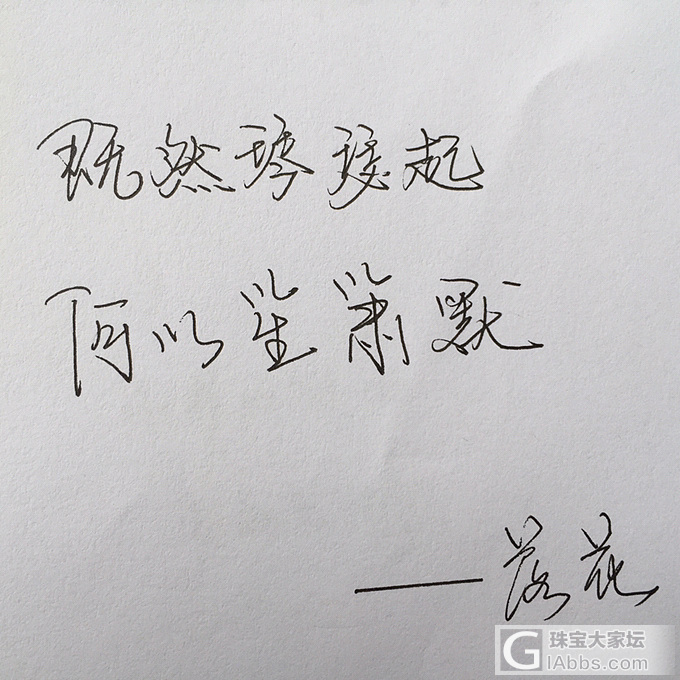 既然琴瑟起
何以笙箫默
——落花
珠宝大家坛
GIAbbs.com